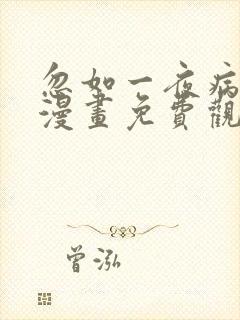 忽如一夜病
漫畫免費觀
曾泓